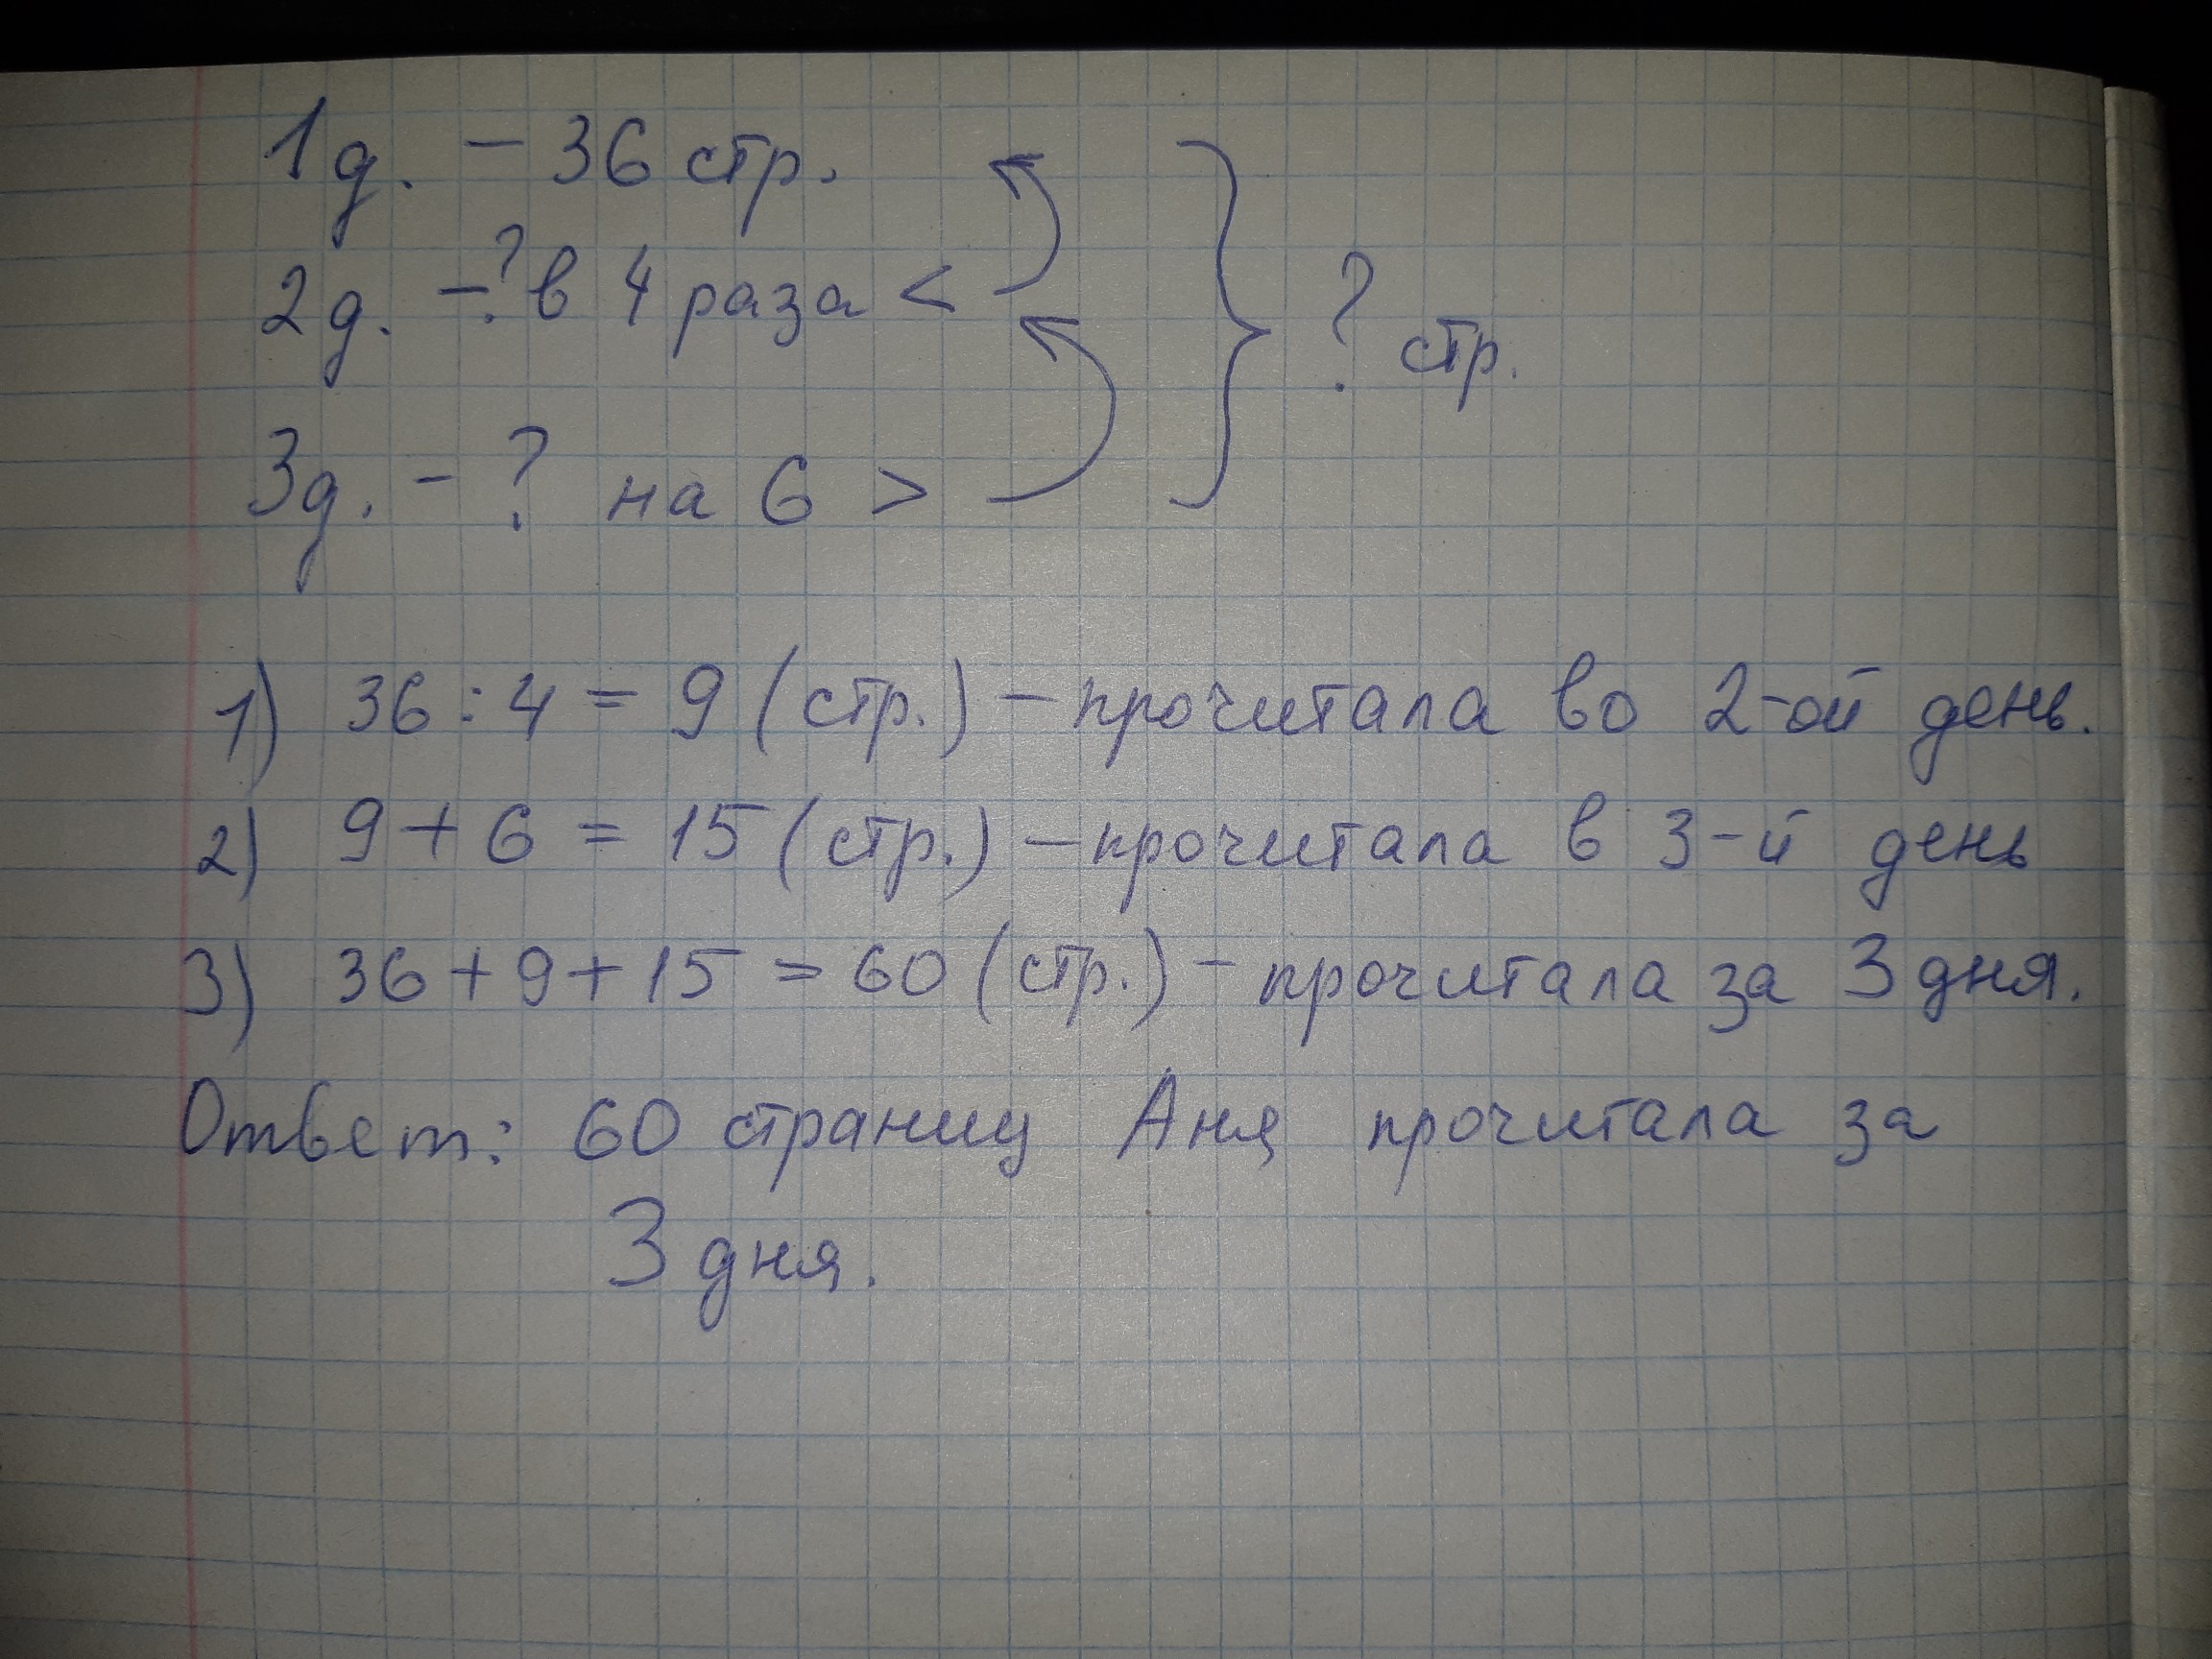 1д. – 36 стр.
2д. – ? в 4 раза <
? стр.
3д. – ? на 6 >
1) 36 : 4 = 9 (стр.) – прочитала во 2-ой день.
2) 9 + 6 = 15 (стр.) – прочитала в 3-й день
3) 36 + 9 + 15 = 60 (стр.) – прочитала за 3 дня.
Ответ: 60 страниц Аня прочитала за
3 дня.